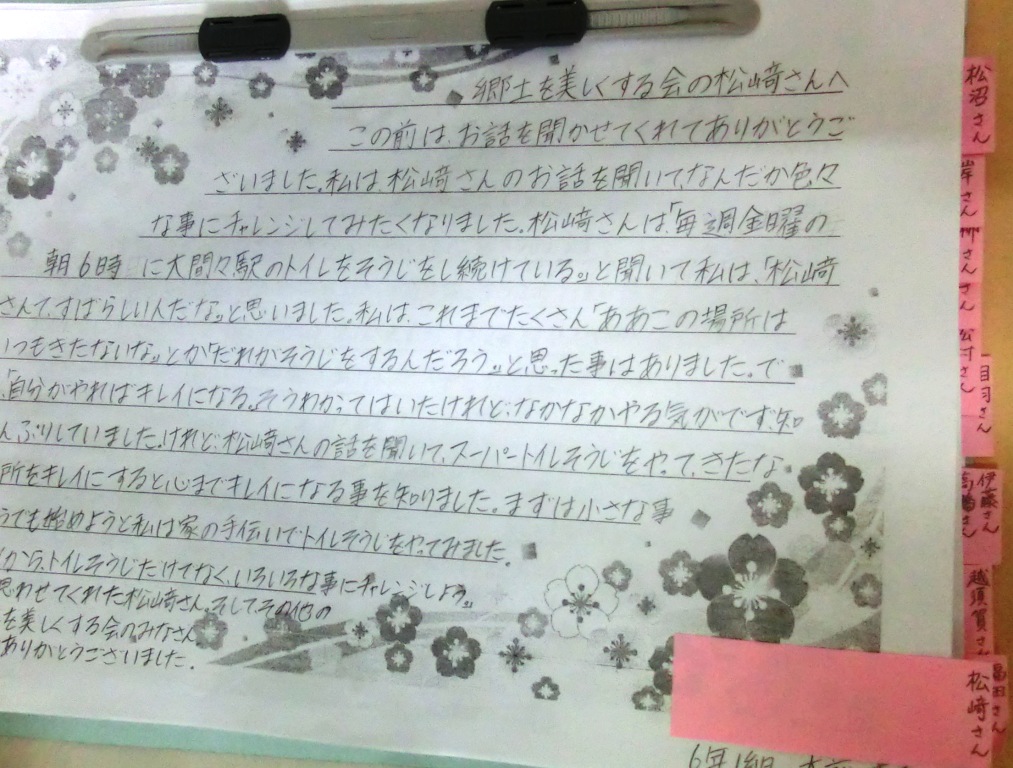 郷土を美しくする会の松﨑さんへ
この前は、お話を聞かせてくれてありがとうご
ざいました。私は、松﨑さんのお話を聞いて、なんだか色々
な事にチャレンジしてみたくなりました。松﨑さんは、「毎週金曜の
朝6時 に大間々駅のトイレをそうじをし続けている。」と聞いて私は、「松﨑
さんて、すばらしい人だな。」と思いました。私は、これまでたくさん「ああこの場所は
いつもきたないな。」とか「だれがそうじをするんだろう。」と思った事はありました。で
「自分がやればキレイになる。」そうわかってはいたけれど、なかなかやる気がでず、知
んぷりしていました。けれど、松﨑さんの話を聞いて、スーパートイレそうじをやって、きたな
所をキレイにすると心までキレイになる事を知りました。まずは小さな事
でも始めようと私は家の手伝いで、トイレそうじをやってみました。
から、トイレそうじだけでなく、いろいろな事にチャレンジしよう。」
思わせてくれた松﨑さん。そしてその他の
を美しくする会のみなさん
ありがとうございました。
6年1組
松沼さん
岸さん
さん
松村さん
目羽さん
伊藤さん
さん
越須賀さん
さん
松﨑さん